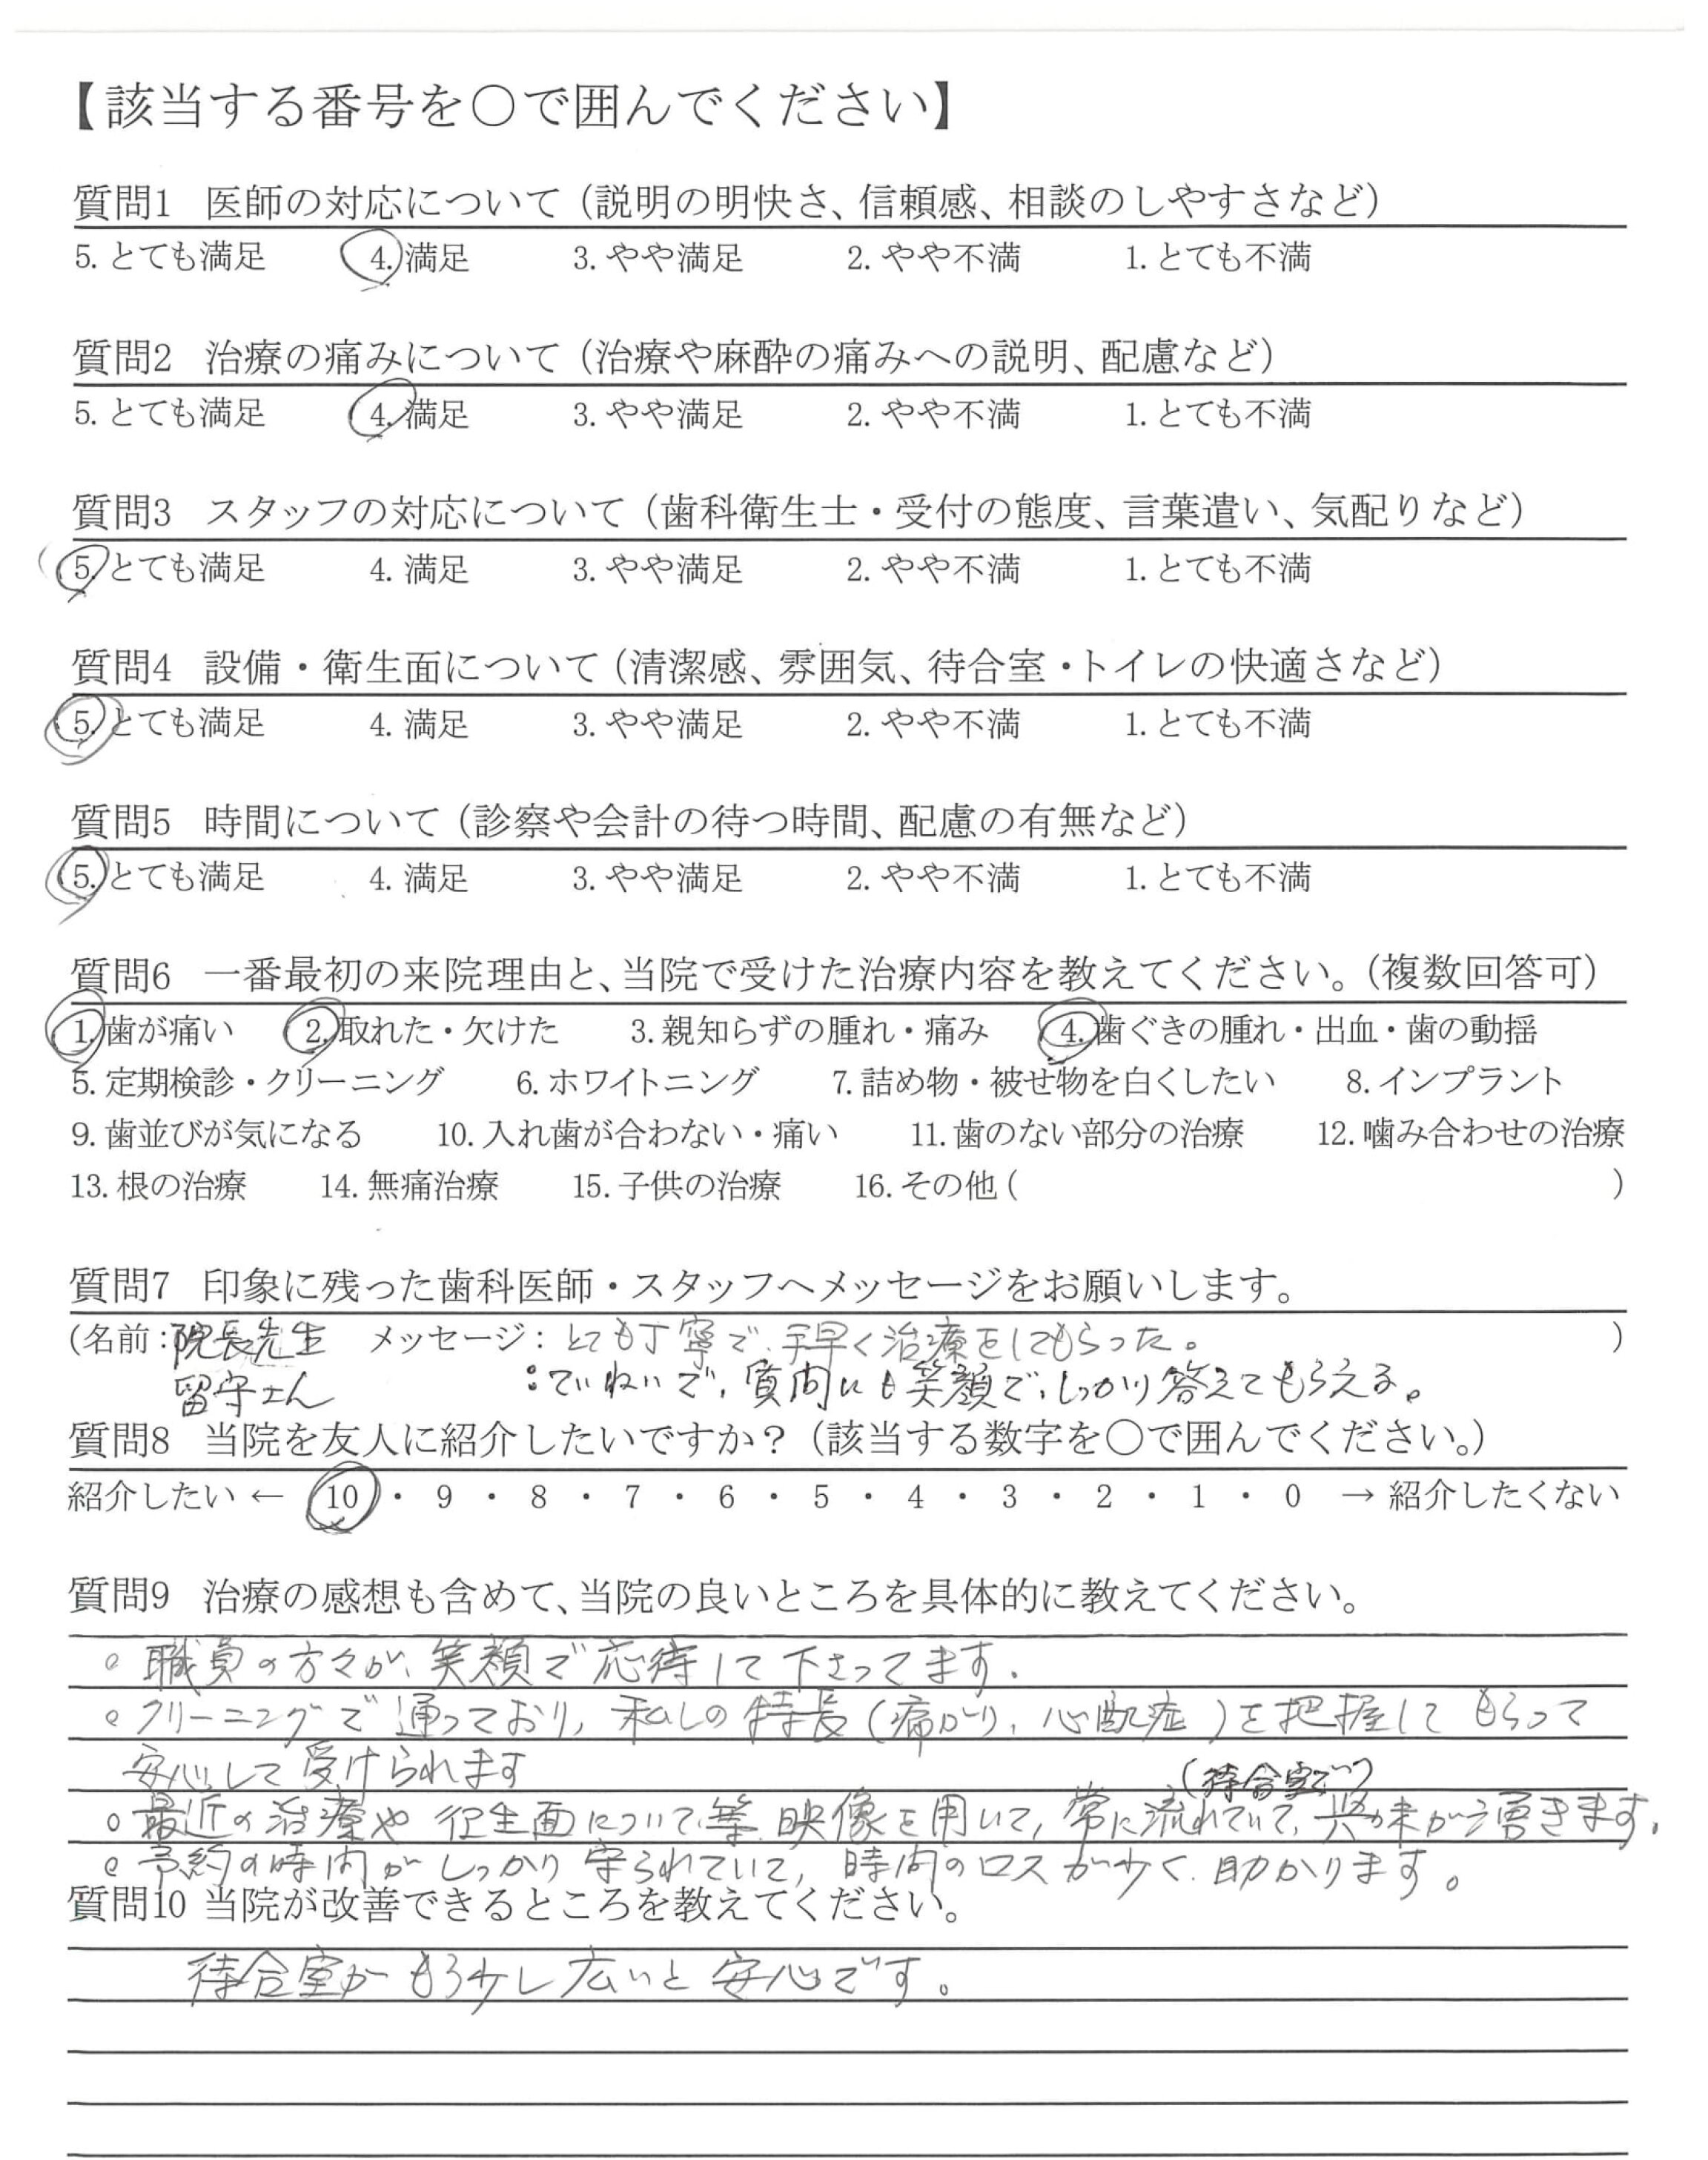 【該当する番号を○で囲んでください】
質問1 医師の対応について（説明の明快さ、信頼感、相談のしやすさなど）
5. とても満足 4. 満足 3. やや満足 2. やや不満 1. とても不満
質問2 治療の痛みについて（治療や麻酔の痛みへの説明、配慮など）
5. とても満足 4. 満足 3. やや満足 2. やや不満 1. とても不満
質問3 スタッフの対応について（歯科衛生士・受付の態度、言葉遣い、気配りなど）
5. とても満足 4. 満足 3. やや満足 2. やや不満 1. とても不満
質問4 設備・衛生面について（清潔感、雰囲気、待合室・トイレの快適さなど）
5. とても満足 4. 満足 3. やや満足 2. やや不満 1. とても不満
質問5 時間について（診察や会計の待つ時間、配慮の有無など）
5. とても満足 4. 満足 3. やや満足 2. やや不満 1. とても不満
質問6 一番最初の来院理由と、当院で受けた治療内容を教えてください。（複数回答可）
1. 歯が痛い 2. 取れた・欠けた 3. 親知らずの腫れ・痛み 4. 歯ぐきの腫れ・出血・歯の動揺
5. 定期検診・クリーニング 6. ホワイトニング 7. 詰め物・被せ物を白くしたい 8. インプラント
9. 歯並びが気になる 10. 入れ歯が合わない・痛い 11. 歯のない部分の治療 12. 噛み合わせの治療
13. 根の治療 14. 無痛治療 15. 子供の治療 16. その他 ( )
質問7 印象に残った歯科医師・スタッフへメッセージをお願いします。
(名前：院長先生 メッセージ：とても丁寧で、手早く治療をしてもらった。 )
留守さん ：ていねいで、質問にも笑顔で、しっかり答えてもらえる。
質問8 当院を友人に紹介したいですか？（該当する数字を○で囲んでください。）
紹介したい ← 10 ・ 9 ・ 8 ・ 7 ・ 6 ・ 5 ・ 4 ・ 3 ・ 2 ・ 1 ・ 0 → 紹介したくない
質問9 治療の感想も含めて、当院の良いところを具体的に教えてください。
○ 職員の方々が、笑顔で応待して下さってます.
○ クリーニングで通っており、私しの特長（痛がり、心配症）を把握してもらって
安心して受けられます
(待合室で)
○ 最近の治療や衛生面について等、映像を用いて、常に流れていて、興味が湧きます.
○ 予約の時間がしっかり守られていて、時間のロスが少く、助かります。
質問10 当院が改善できるところを教えてください。
待合室がもう少し広いと安心です。